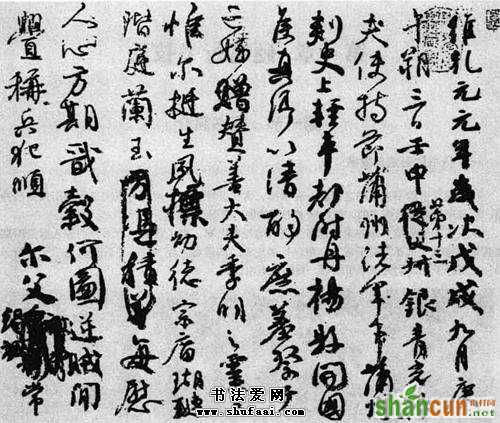 維乾元元年歲次戊戌九月庚
午朔三日壬申第十三叔銀青光
夫使持節蒲州諸軍事蒲州
刺史上輕車都尉丹楊縣開國
侯真卿以清酌庶羞祭于
亡姪贈贊善大夫季明之靈
惟爾挺生夙標幼德宗廟瑚璉
階庭蘭玉方憑積善每慰
人心方期戩穀何圖逆賊閒
釁稱兵犯順爾父常
书法爱网
www.shufaai.com
shancun.net